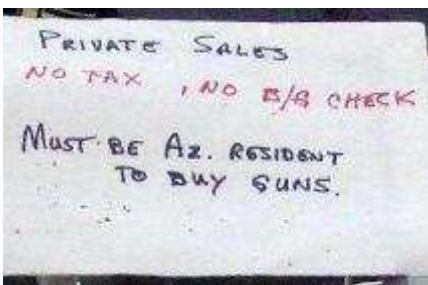 PRIVATE SALES
NO TAX, NO B/G CHECK
MUST BE AZ. RESIDENT
TO BUY GUNS.